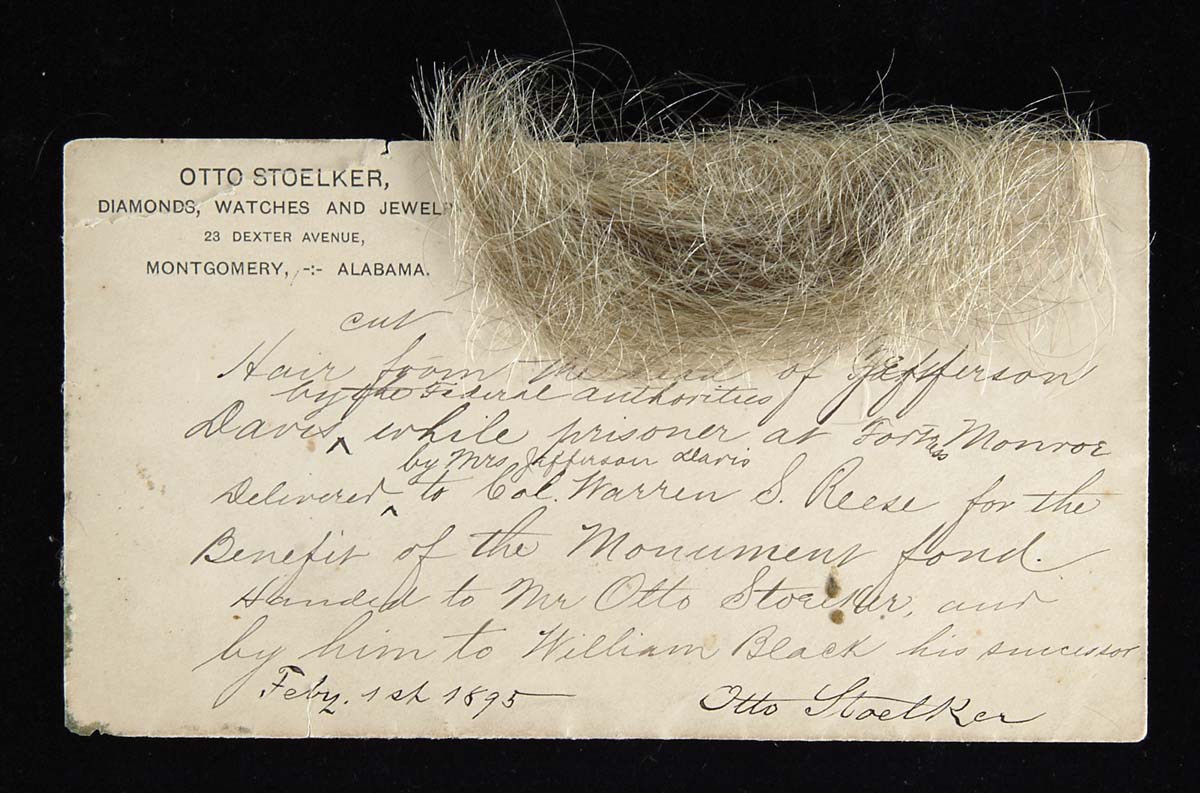 OTTO STOELKER,
DIAMONDS, WATCHES AND JEWEL
23 DEXTER AVENUE,
MONTGOMERY, -:- ALABAMA.
cut
Hair from the head of Jefferson
by the Federal authorities
Davis ^ while prisoner at Fortress Monroe
by Mrs Jefferson Davis
Delivered ^ to Col. Warren S. Reese for the
Benefit of the Monument fond.
Handed to Mr Otto Stoelker, and
by him to William Black his successor
Feby. 1st 1895 Otto Stoelker